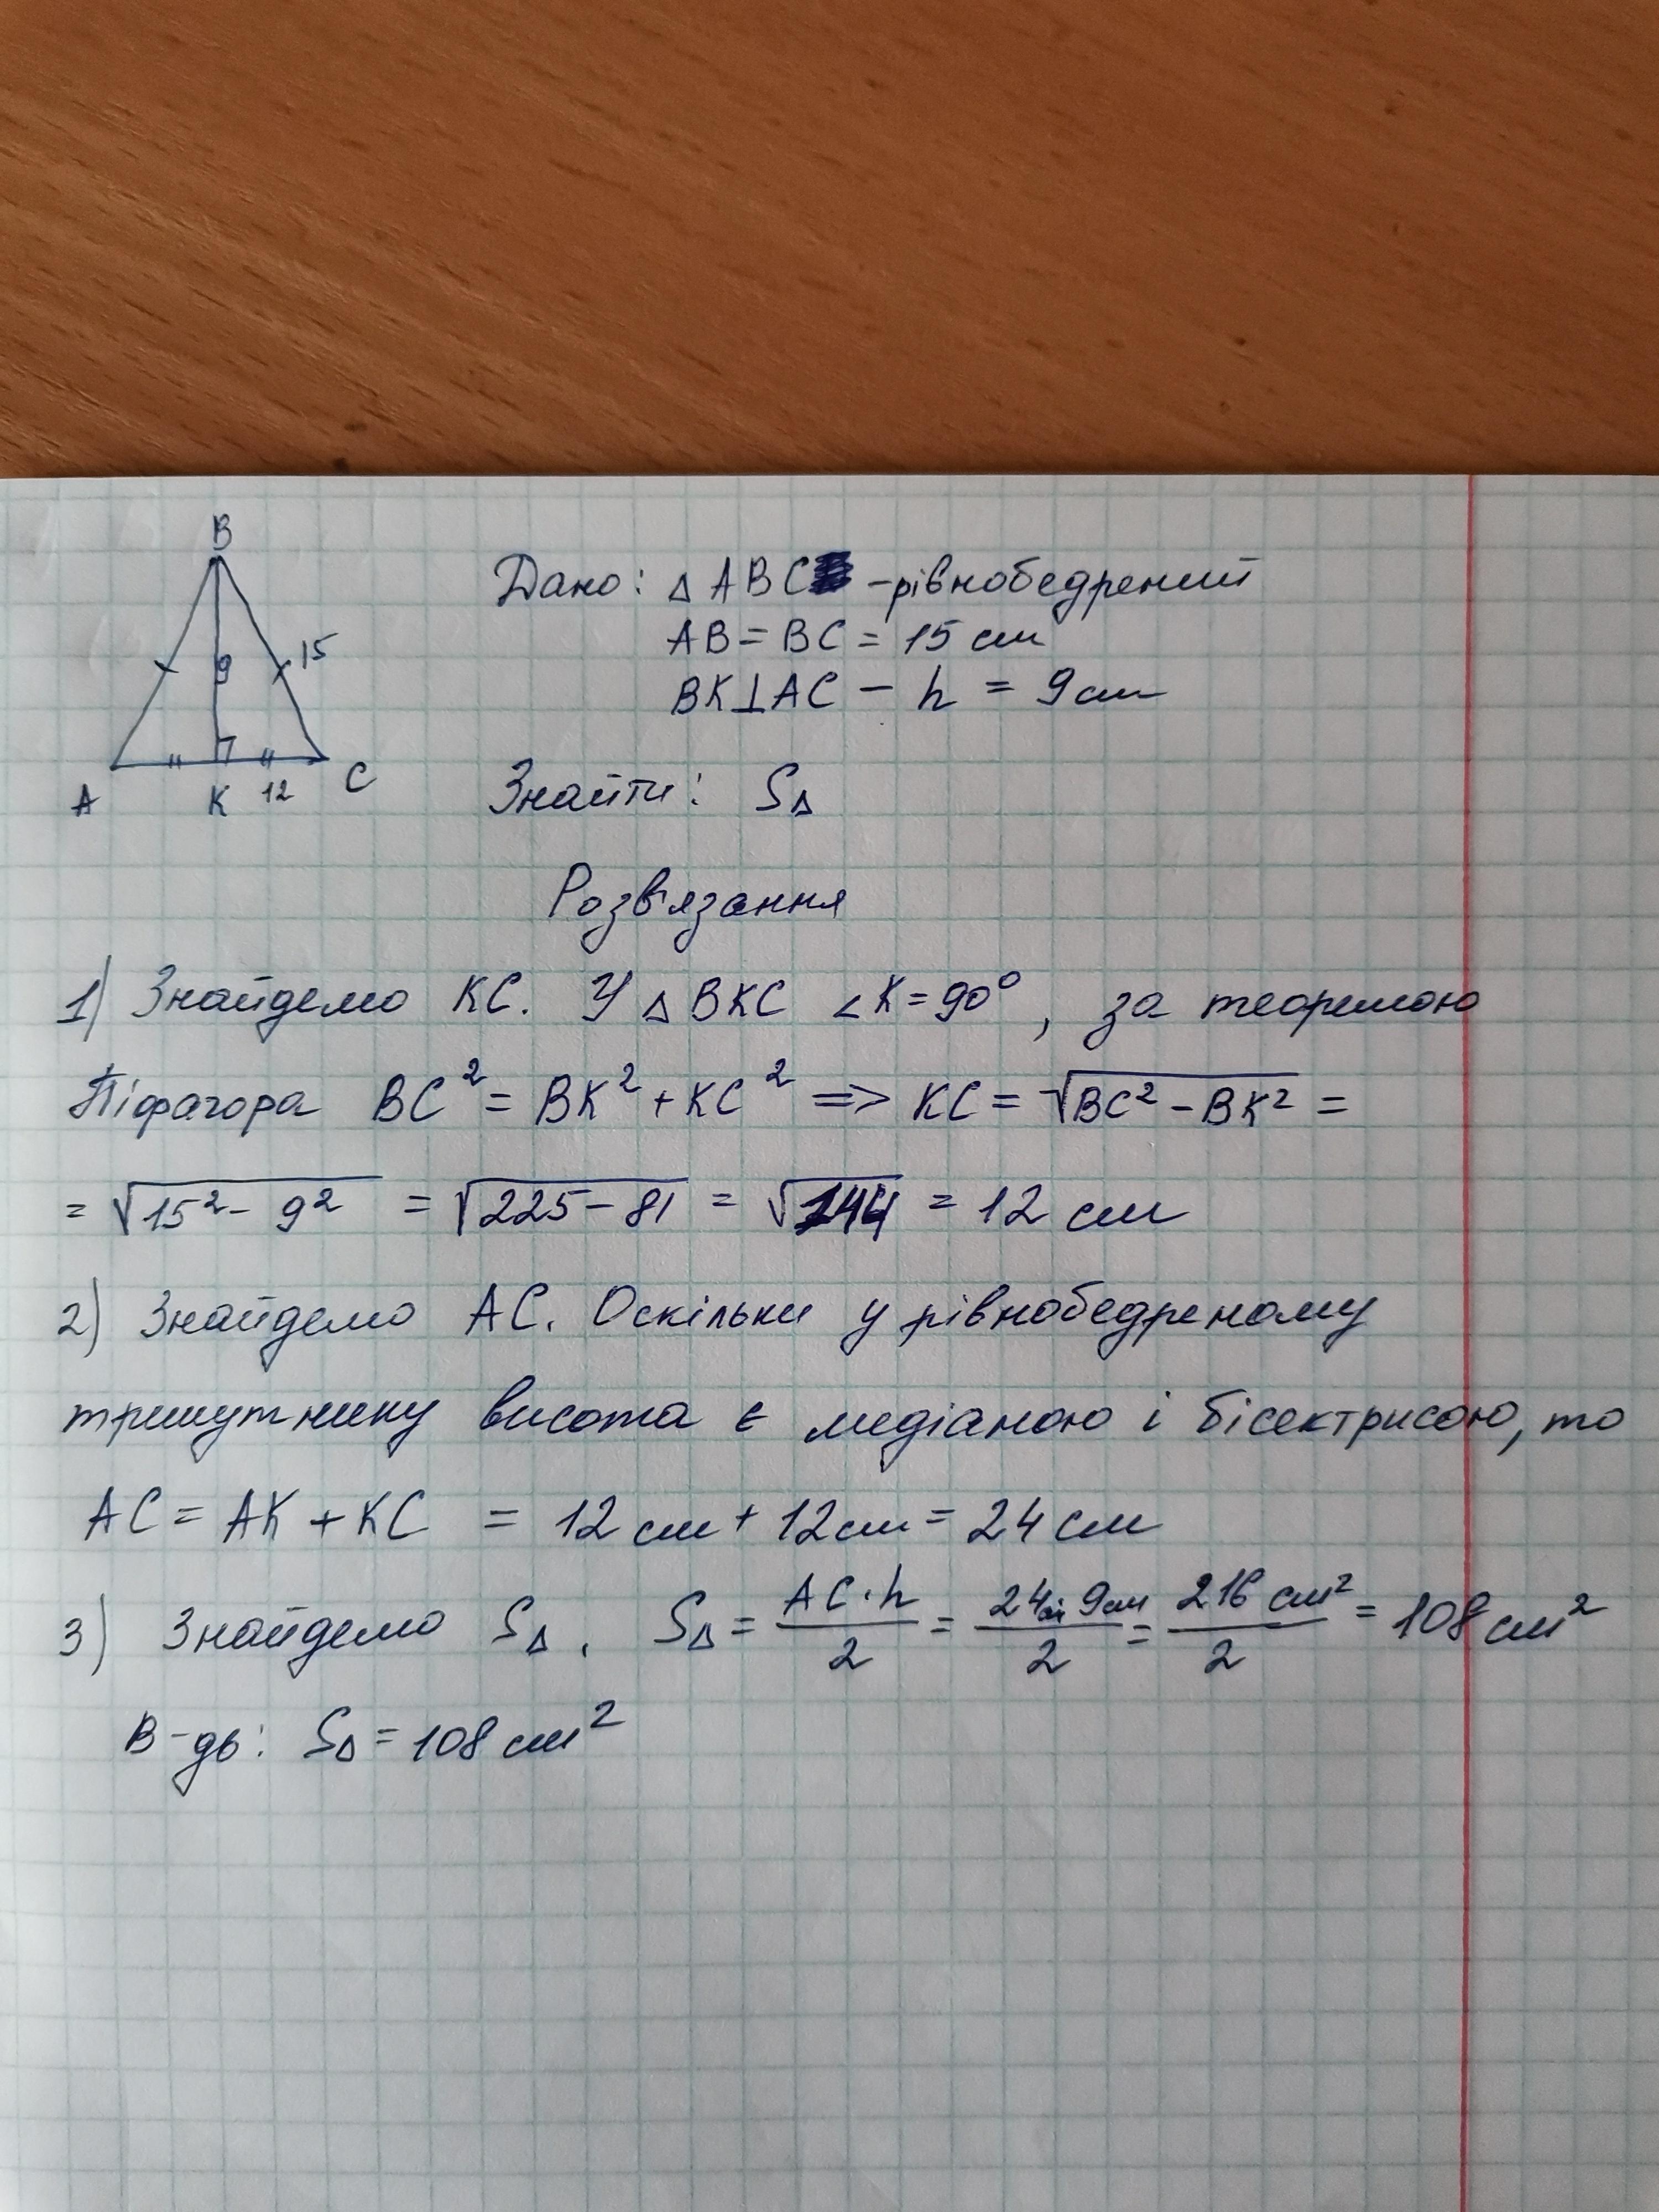 B
Дано: △ ABC - рівнобедрений
AB = BC = 15 см
15
9
BK⊥AC - h = 9 см
A K 12 C
Знайти: S△
Розв'язання
1) Знайдемо KC. У △ BKC ∠K = 90°, за теоремою
Піфагора BC² = BK² + KC² => KC = √BC² - BK² =
= √15² - 9² = √225 - 81 = √144 = 12 см
2) Знайдемо AC. Оскільки у рівнобедреному
трикутнику висота є медіаною і бісектрисою, то
AC = AK + KC = 12 см + 12 см = 24 см
3) Знайдемо S△. S△ = AC·h/2 = 24см·9см/2 = 216 см²/2 = 108 см²
В-дь: S△ = 108 см²